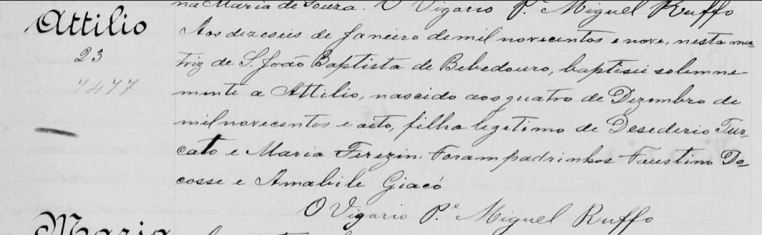 na Maria de Souza. O Vigario P.e Miguel Ruffo
Attilio
23
7477
Aos dizeseis de Janeiro de mil novecentos e nove, nesta ma
triz de S. João Baptista de Bebedouro, baptisei solemne-
mente a Attilio, nascido aos quatro de Dezembro de
mil novecentos e oito, filho legitimo de Desederio Tur
cato e Maria Terezin. Foram padrinhos Faustino De
cosse e Amabile Giacó
O Vigario P.e Miguel Ruffo
Maria